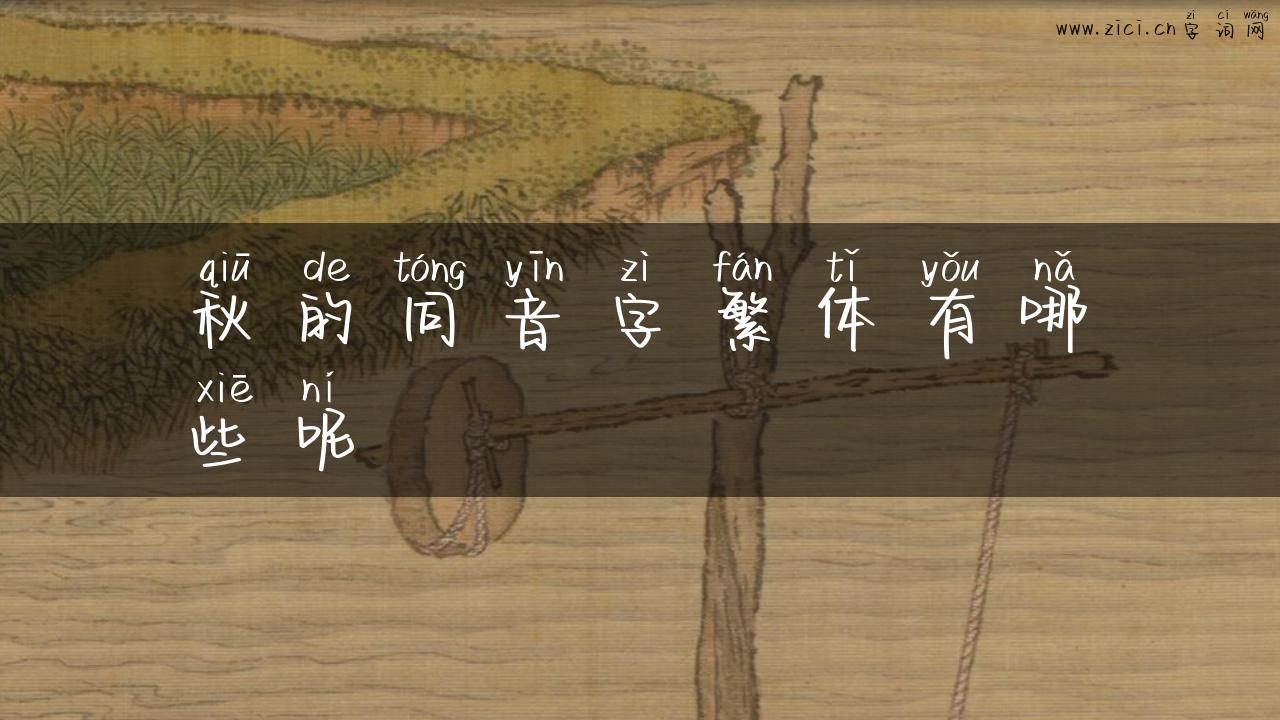 zì cí wǎng
www.zici.cn 字 词 网
qiū de tóng yīn zì fán tǐ yǒu nǎ
秋 的 同 音 字 繁 体 有 哪
xiē ní
些 呢